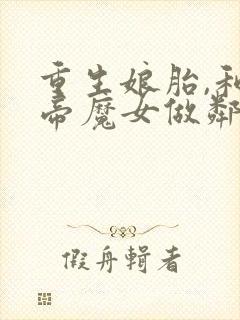 重生娘胎,和
帝魔女做鄰
假舟輯者